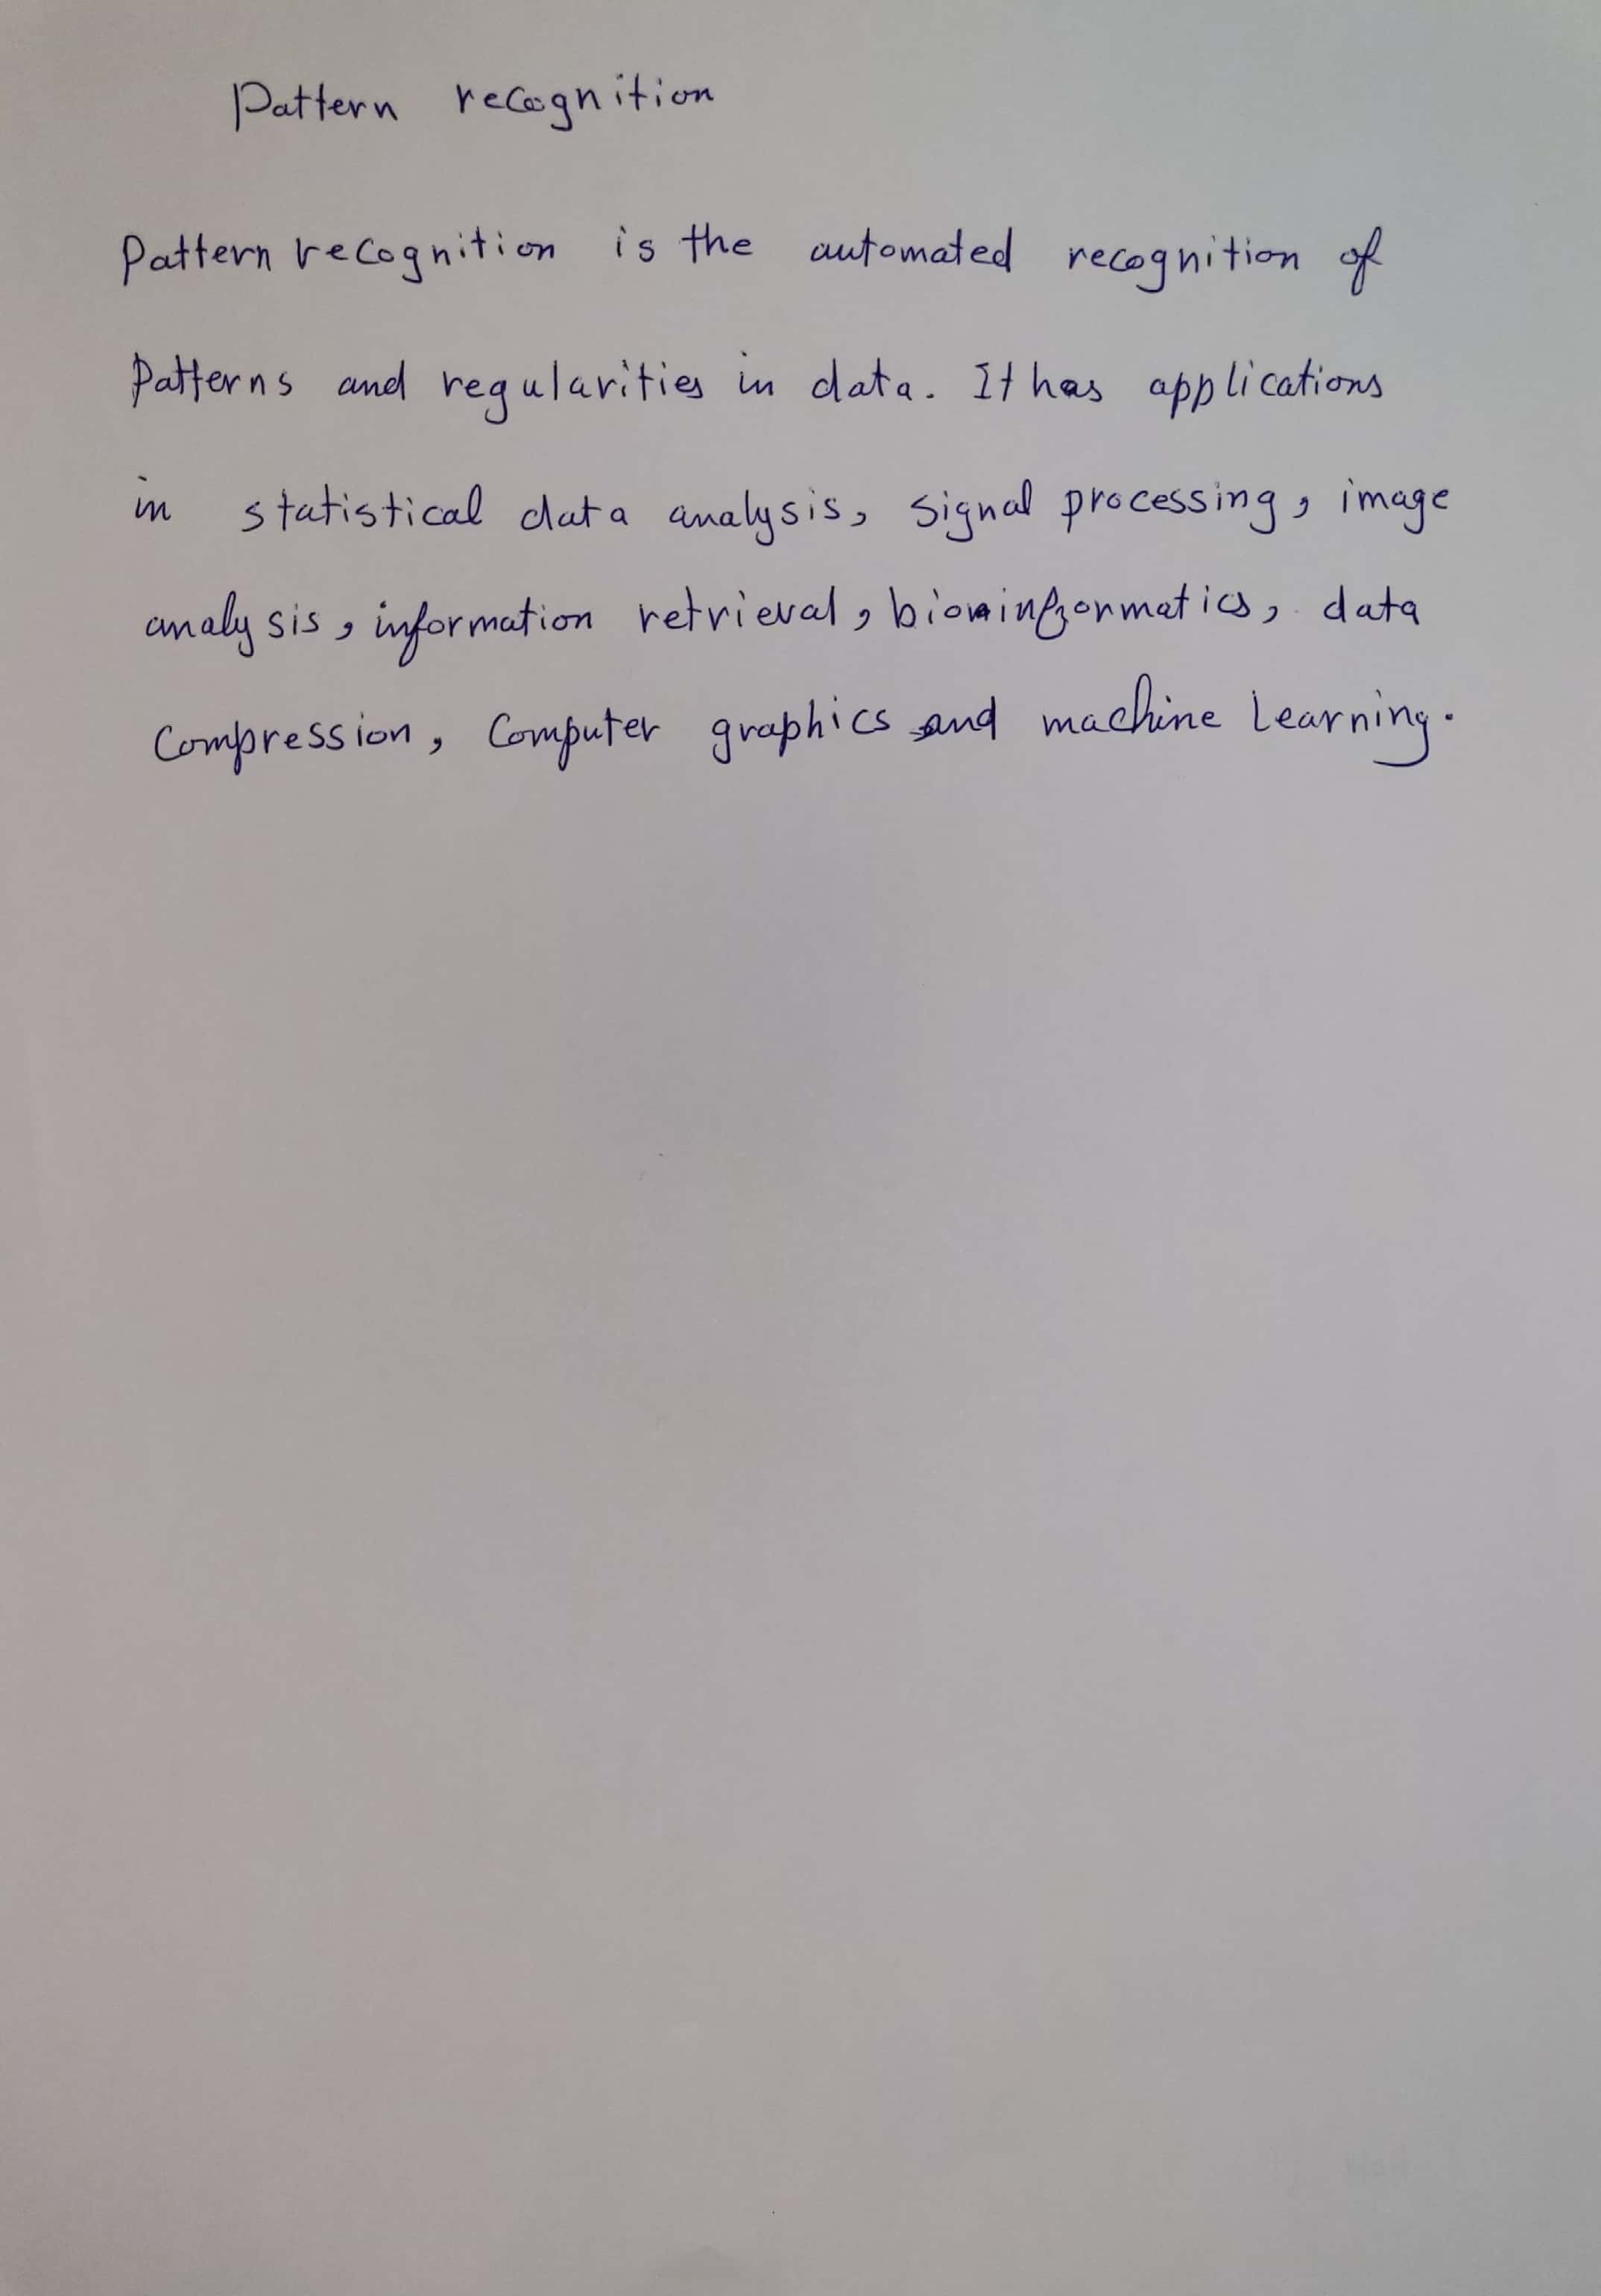 Pattern recognition
Pattern recognition is the automated recognition of
Patterns and regularities in data. It has applications
in statistical data analysis, signal processing, image
analysis, information retrieval, bioinformatics, data
Compression, Computer graphics and machine Learning.